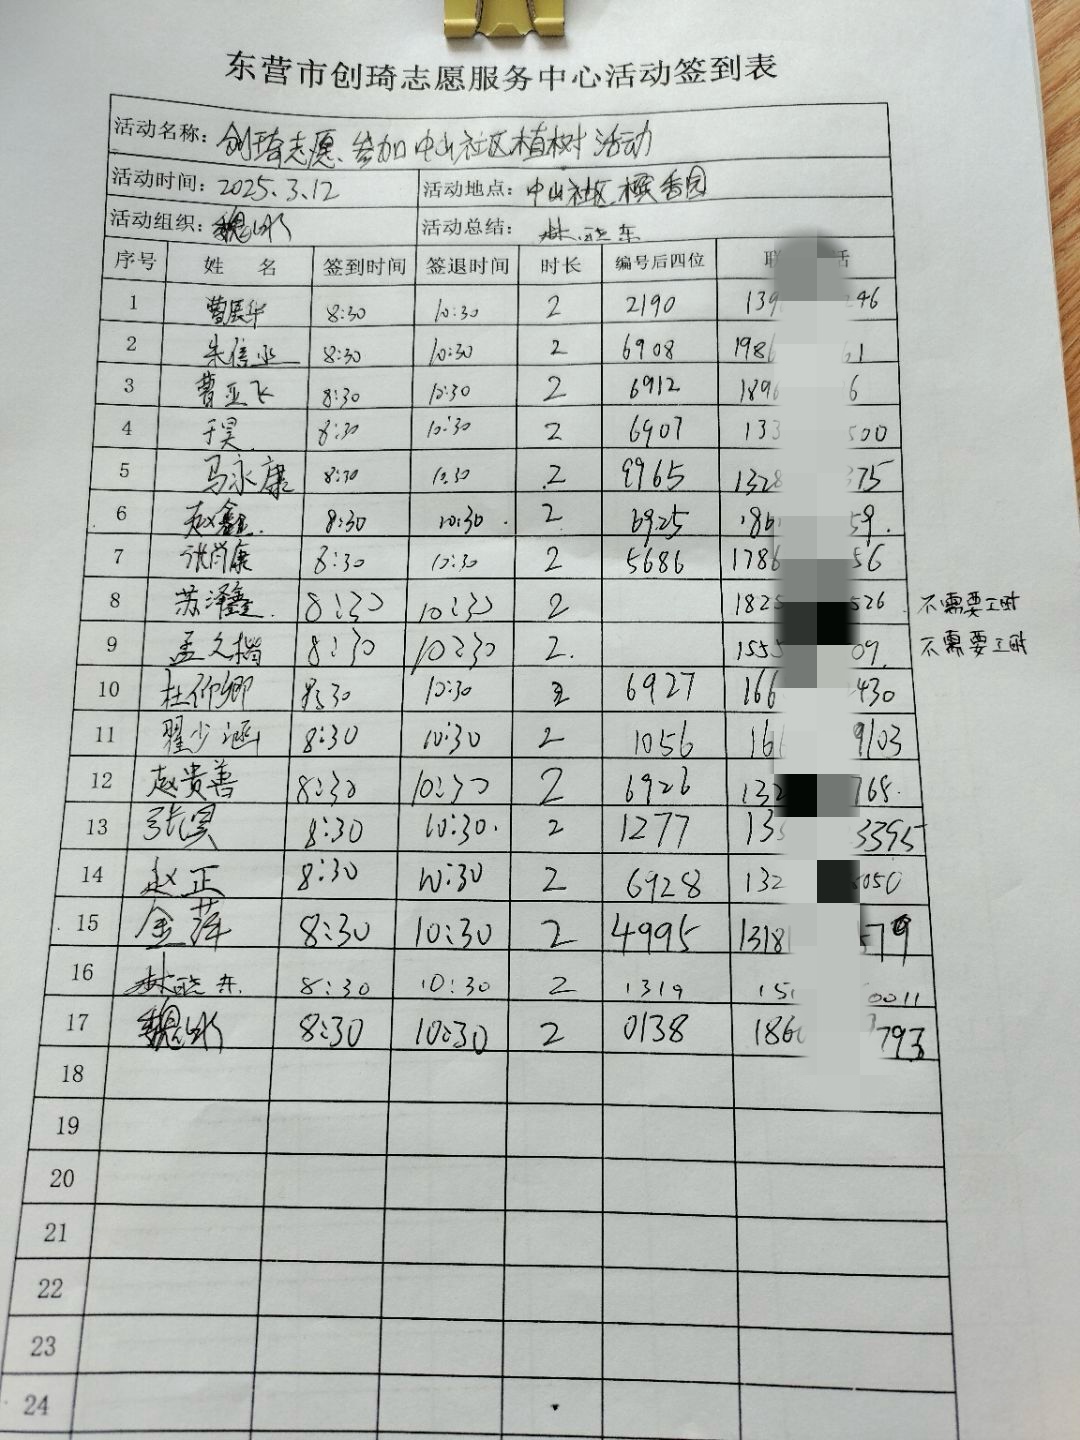 东营市创琦志愿服务中心活动签到表
活动名称: 创琦志愿、参加中山社区植树活动
活动时间: 2025.3.12 活动地点: 中山社区 槟香园
活动组织: 魏 活动总结: 林晓东
序号 姓 名 签到时间 签退时间 时长 编号后四位 联 话
1 曹 华 8:30 10:30 2 2190 139 246
2 朱信 8:30 10:30 2 6908 198 61
3 曹亚飞 8:30 10:30 2 6912 189 6
4 于昊 8:30 10:30 2 6907 133 500
5 马永康 8:30 10:30 2 9965 1328 375
6 赵鑫 8:30 10:30 2 6925 186 59
7 张肖康 8:30 10:30 2 5686 1786 56
8 苏泽鑫 8:30 10:30 2 1825 526 不需要工时
9 孟久楷 8:30 10:30 2. 1555 09. 不需要工时
10 杜仰卿 8:30 10:30 2 6927 166 430
11 翟少涵 8:30 10:30 2 1056 16 9103
12 赵贵善 8:30 10:30 2 6926 132 768.
13 张昊 8:30 10:30. 2 1277 13 3395
14 赵正 8:30 10:30 2 6928 132 050
15 金萍 8:30 10:30 2 4995 1318 579
16 林晓东 8:30 10:30 2 1319 15 0011
17 魏 8:30 10:30 2 0138 186 793
18
19
20
21
22
23
24